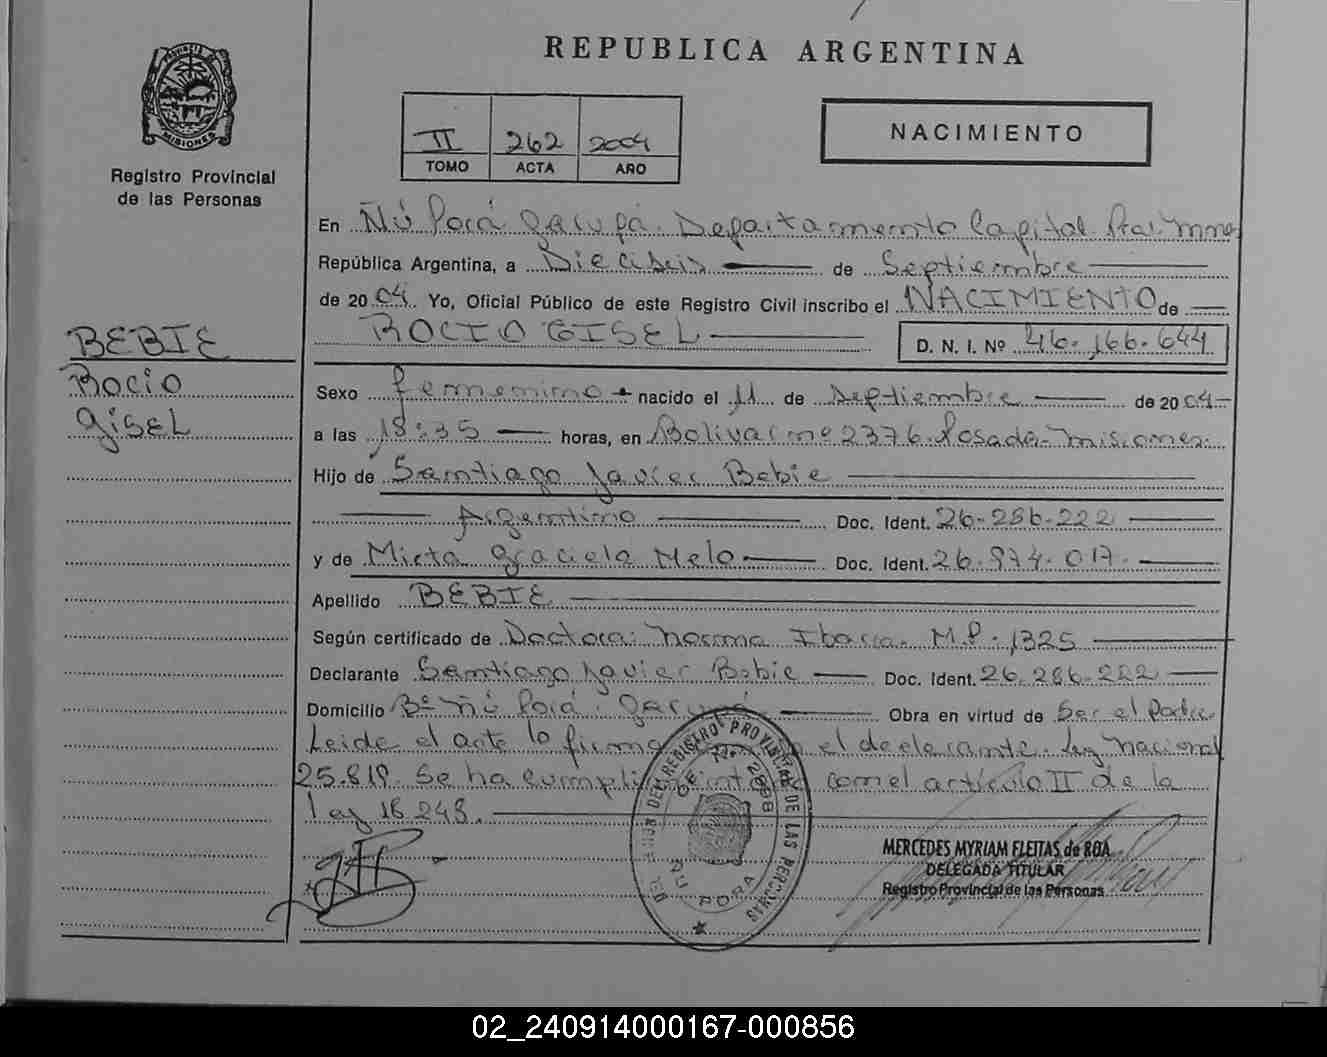 REPUBLICA ARGENTINA
PROVINCIA DE MISIONES
Registro Provincial
de las Personas
II 262 2004
TOMO ACTA AÑO
NACIMIENTO
En Ñú Porá Garupá. Departamento Capital. Misiones
República Argentina, a Dieciseis de Septiembre
de 2004. Yo, Oficial Público de este Registro Civil inscribo el NACIMIENTO de
ROCIO GISEL D. N. I. Nº 46.166.644
BEBIE
Rocio
gisel
Sexo femenino nacido el 11 de Septiembre de 2004
a las 18:35 horas, en Bolivar nº 2376. Posadas-Misiones.
Hijo de Santiago Javier Bebie
Argentino Doc. Ident. 26-286-222
y de Mirta Graciela Melo Doc. Ident. 26.974.017.
Apellido BEBIE
Según certificado de Doctora: Norma Ibarra. M.P. 1325
Declarante Santiago Javier Bebie Doc. Ident. 26.286.222
Domicilio Bº Ñú Porá. Garupá Obra en virtud de Ser el Padre.
Leida el acta la firma el declarante. Ley Nacional
25.819. Se ha cumplido con el artículo II de la
ley 18.248.
DEL REGISTRO PROVINCIAL DE LAS PERSONAS
ÑU PORA
MERCEDES MYRIAM FLEITAS de ROA
DELEGADA TITULAR
Registro Provincial de las Personas
02_240914000167-000856